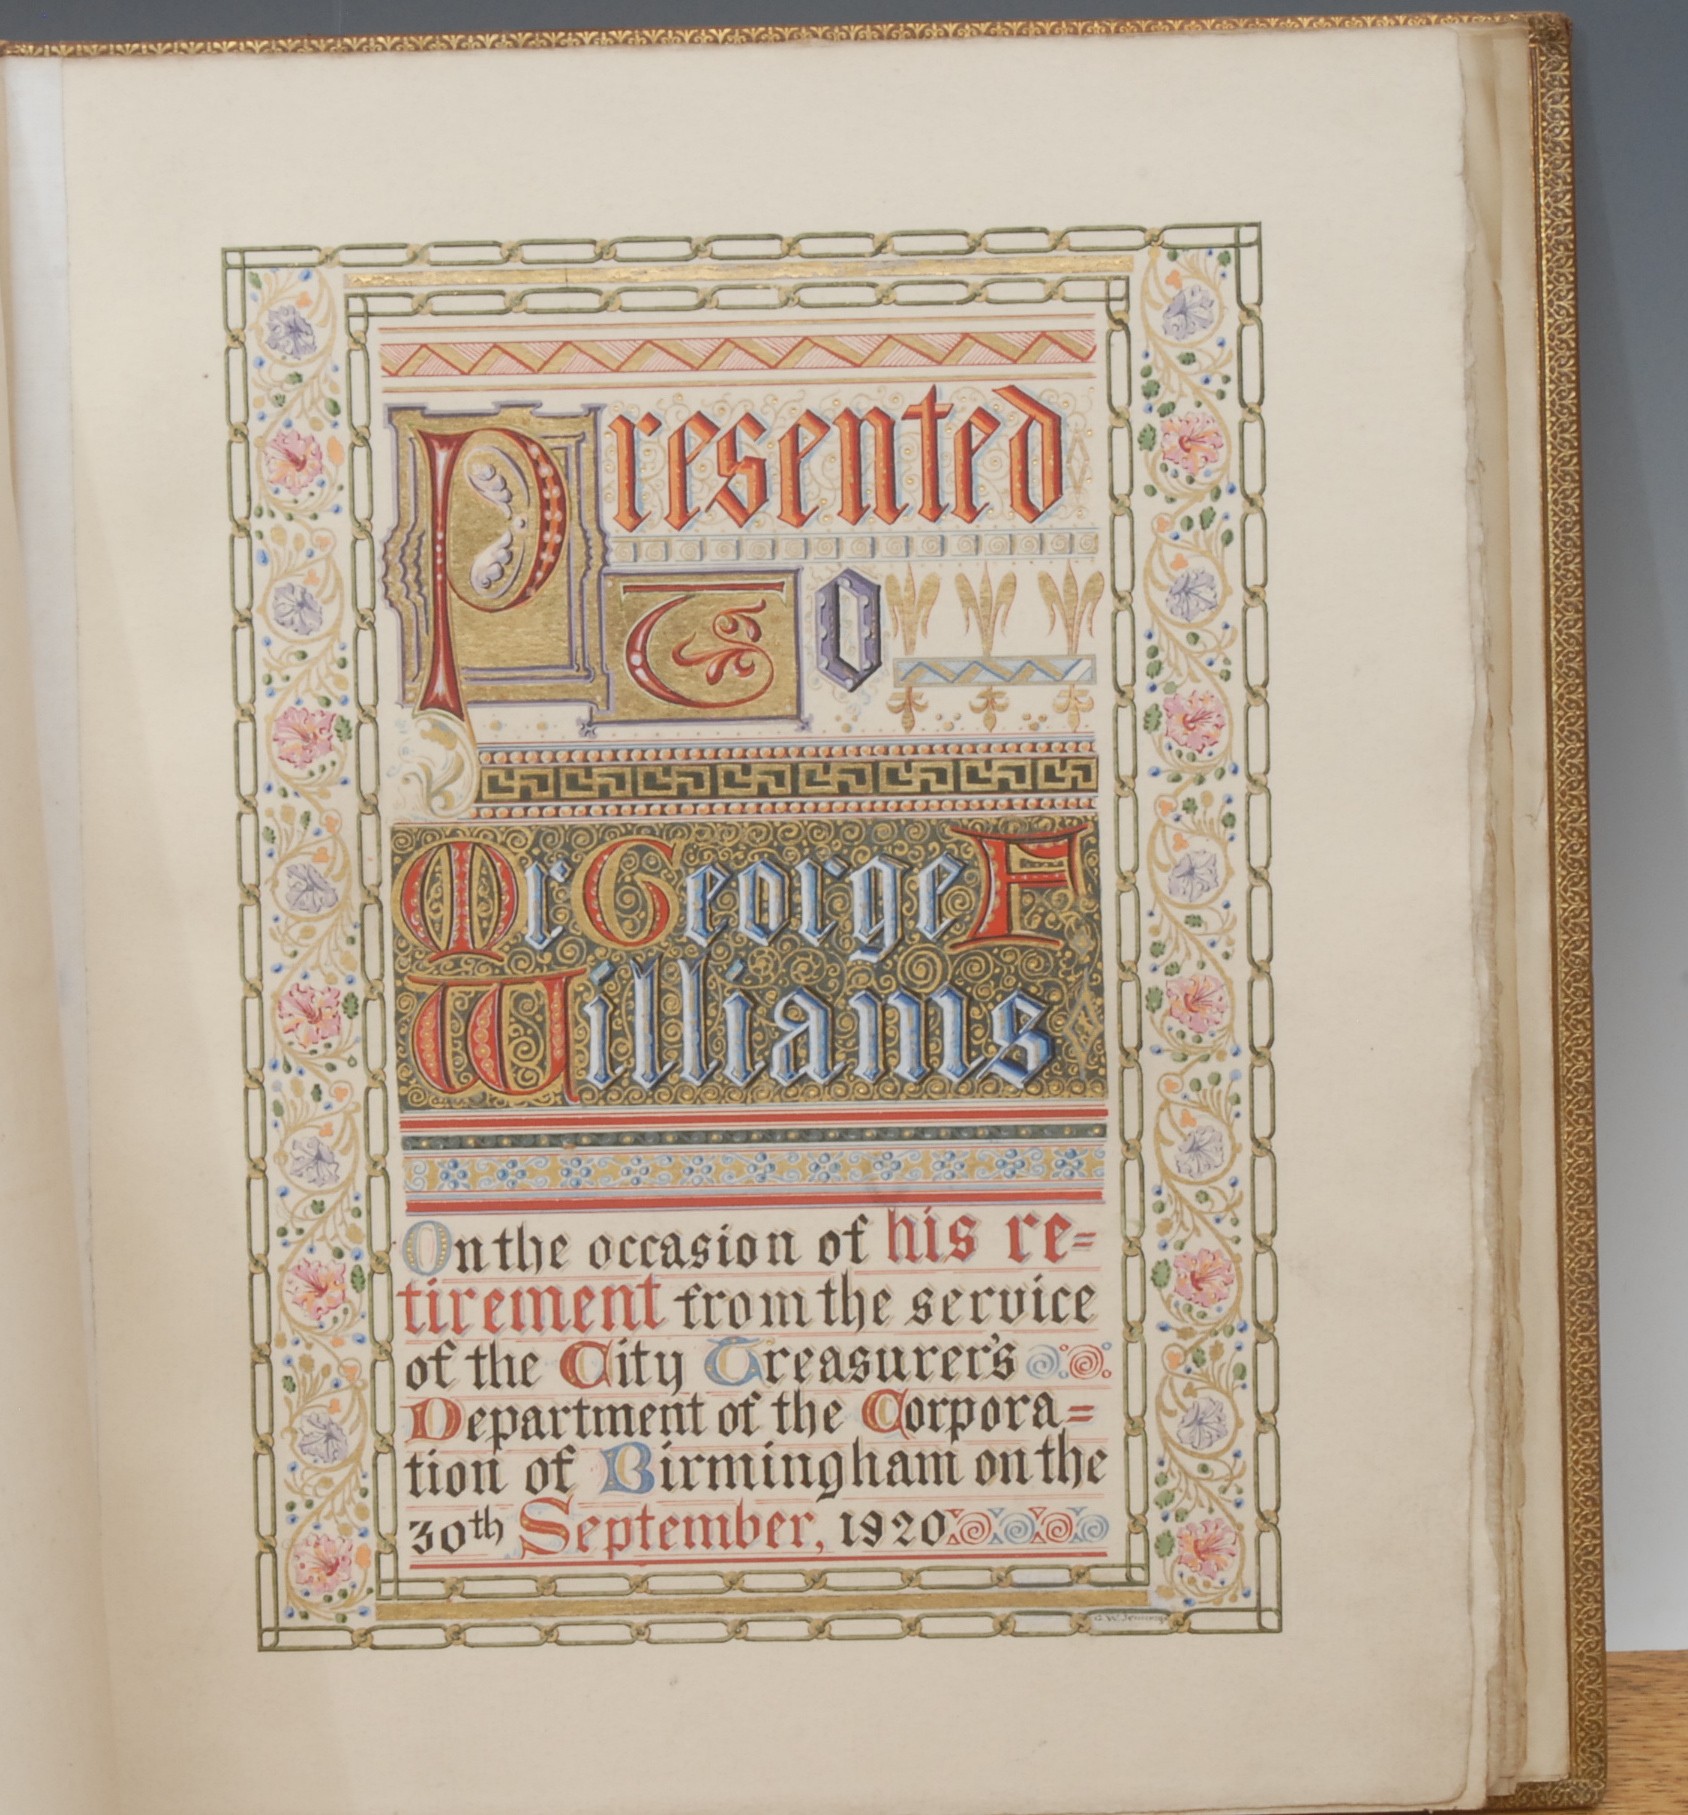 Presented
To
Mr George F
Williams
On the occasion of his re=
tirement from the service
of the City Treasurer's
Department of the Corpora=
tion of Birmingham on the
30th September, 1920